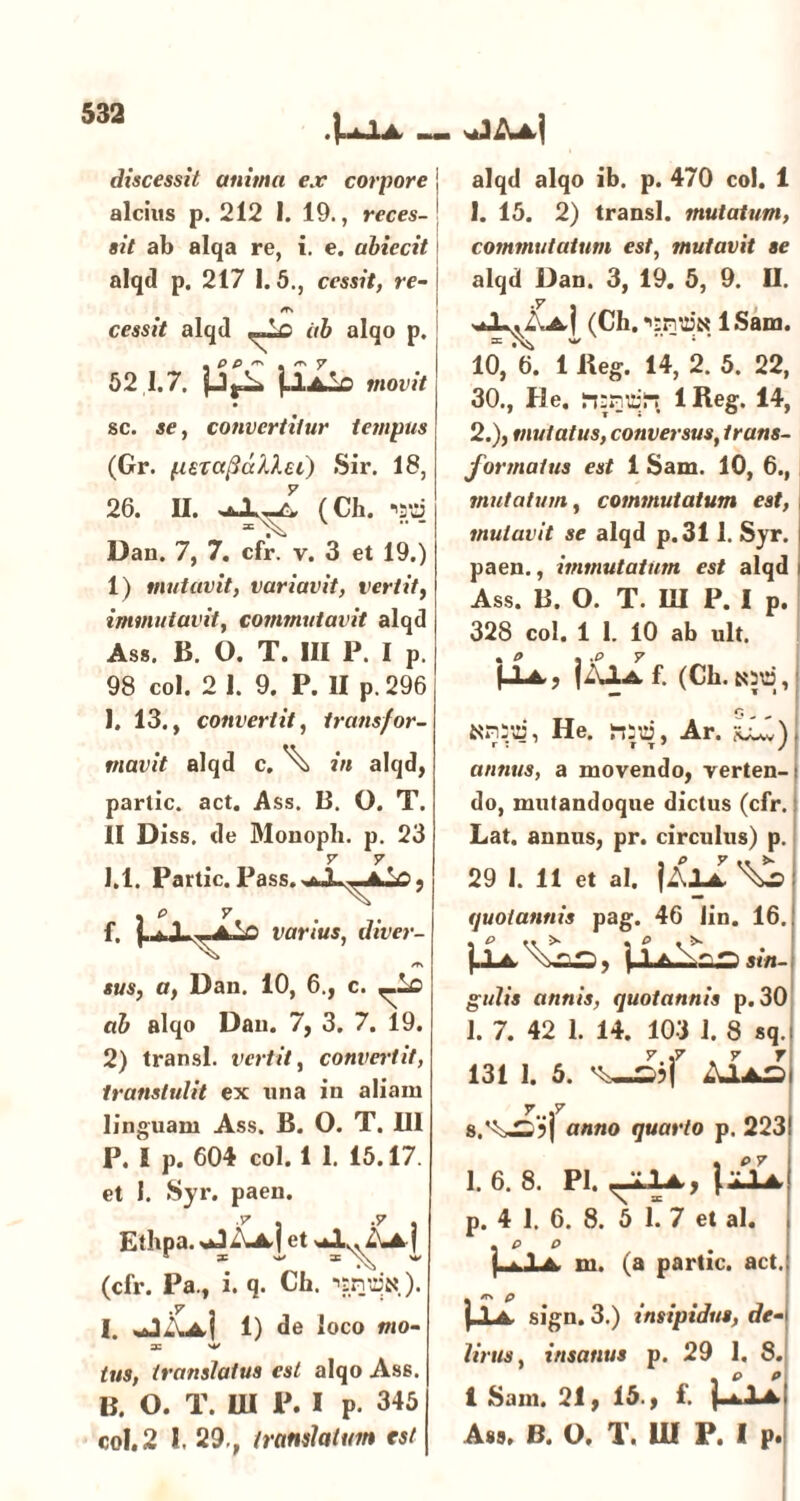 532
ܫܢܝܐ. — ܐܫܬܢܝ
discessit anima ex corpore
alcius p. 212 l. 19., reces-
sit ab alqa re, i. e. abiecit
alqd p. 217 l. 5., cessit, re-
cessit alqd ܡܢ ab alqo p.
52 l. 7. movit
sc. se, convertitur tempus
(Gr. μεταβάλλει) Sir. 18,
26. II. ܫܰܓܢܝ (Ch. שַׁנִּי
Dan. 7, 7. cfr. v. 3 et 19.)
1) mutavit, variavit, vertit,
immutavit, commutavit alqd
Ass. B. O. T. III P. I p.
98 col. 2 l. 9. P. II p. 296
l. 13., convertit, transfor-
mavit alqd c. ܠ in alqd,
partic. act. Ass. B. O. T.
II Diss. de Monoph. p. 23
l.1. Partic. Pass. ܡܫܰܓܢܰܝ,
f. ܡܫܰܓܢܝܳܐ varius, diver-
sus, a, Dan. 10, 6., c. ܡܢ
ab alqo Dan. 7, 3. 7. 19.
2) transl. vertit, convertit,
transtulit ex una in aliam
linguam Ass. B. O. T. III
P. I p. 604 col. 1 l. 15.17.
et l. Syr. paen.
Ethpa. ܐܫܬܰܢܝ et ܐܫܬܰܓܢܝ
(cfr. Pa., i. q. Ch. אִשְׁתַּנִּי).
I. ܐܫܬܰܢܝ 1) de loco mo-
tus, translatus est alqo Ass.
B. O. T. III P. I p. 345
col. 2 l. 29., translatum est
alqd alqo ib. p. 470 col. 1
l. 15. 2) transl. mutatum,
commutatum est, mutavit se
alqd Dan. 3, 19. 5, 9. II.
ܐܫܬܰܓܢܝ (Ch. אִשְׁתַּנִּי 1 Sam.
10, 6. 1 Reg. 14, 2. 5. 22,
30., He. הִשְׁתַּנָּה 1 Reg. 14,
2.), mutatus, conversus, trans-
formatus est 1 Sam. 10, 6.,
mutatum, commutatum est,
mutavit se alqd p. 31 l. Syr.
paen., immutatum est alqd
Ass. B. O. T. III P. I p.
328 col. 1 l. 10 ab ult.
ܫܢܳܐ, ܫܰܢ̱ܬܳܐ f. (Ch. שְׁנָא,
שְׁנְתָא, He. שָׁנָה, Ar. سَنَةٌ)
annus, a movendo, verten-
do, mutandoque dictus (cfr.
Lat. annus, pr. circulus) p.
29 l. 11 et al. ܟܠ ܫܰܢ̱ܬܳܐ
quotannis pag. 46 lin. 16.
ܒܟܽܠ ܫܢܳܐ, ܒܟܽܠܫܢܳܐ sin-
gulis annis, quotannis p. 30
l. 7. 42 l. 14. 103 l. 8 sq.
131 l. 5. ܒܫܰܢ̱ܬ ܐܰܪܒܰܥ
s. ܐܰܪܒܰܥ anno quarto p. 223
l. 6. 8. Pl. ܫܢܝ̈ܢ, ܫܢܰܝ̈ܳܐ
p. 4 l. 6. 8. 5 l. 7 et al.
ܫܳܢܝܳܐ m. (a partic. act.
ܫܳܢܶܐ sign. 3.) insipidus, de-
lirus, insanus p. 29 l. 8.
1 Sam. 21, 15., f. ܫܳܢܝܳܐ
Ass. B. O. T. III P. I p.